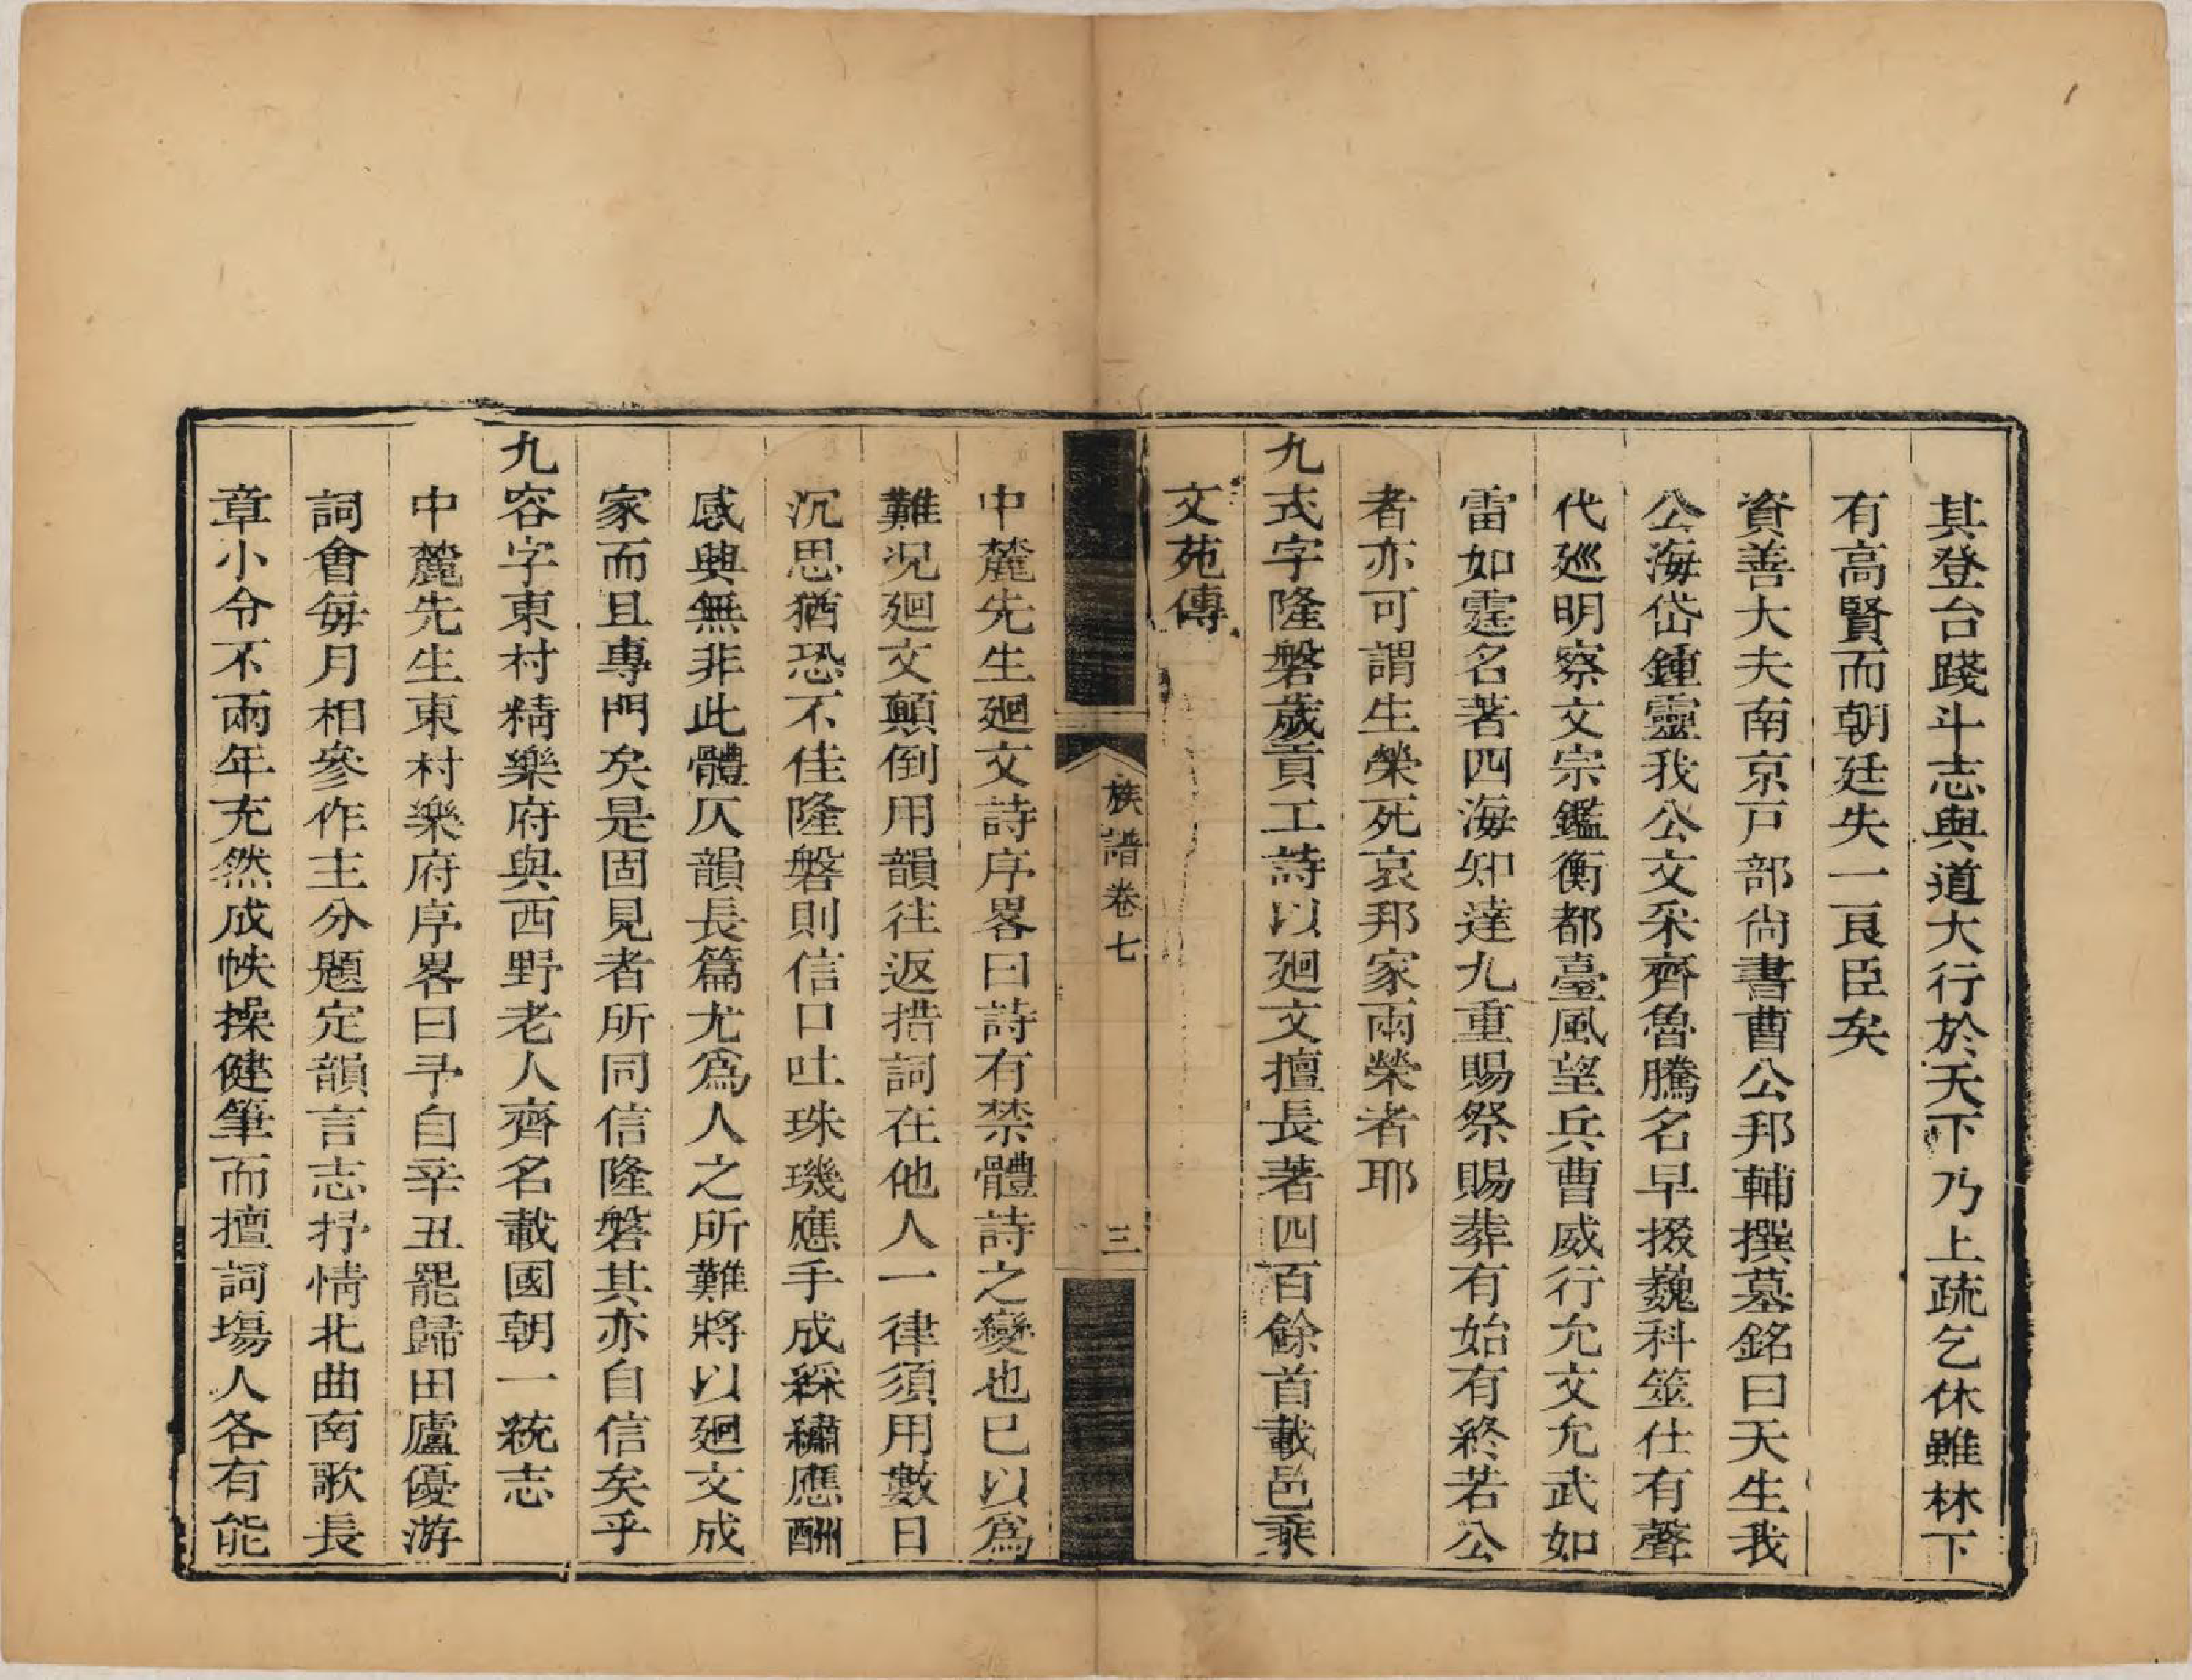 其登台踐斗志與道大行於天下乃上疏乞休雖林下
有高賢而朝廷失一良臣矣
資善大夫南京戸部尚書曹公邦輔撰墓銘曰天生我
公海岱鍾靈我公文采齊魯騰名早掇巍科筮仕有聲
代廵明察文宗鑑衡都臺風望兵曹威行允文允武如
雷如霆名著四海知達九重賜祭賜葬有始有終若公
者亦可謂生榮死哀邦家兩榮者耶
九式字隆磐歲貢工詩以廻文擅長著四百餘首載邑乘
文苑傳
族譜卷七
三
中麓先生廻文詩序畧曰詩有禁體詩之變也已以為
難况廻文顛倒用韻往返措詞在他人一律須用數日
沉思猶恐不佳隆磐則信口吐珠璣應手成綵繡應酬
感興無非此體仄韻長篇尤爲人之所難將以廻文成
家而且專門矣是固見者所同信隆磐其亦自信矣乎
九容字東村精樂府與西野老人齊名載國朝一統志
中麓先生東村樂府序畧曰予自辛丑罷歸田廬優游
詞會每月相參作主分題定韻言志抒情北曲南歌長
章小令不兩年充然成帙操健筆而擅詞塲人各有能